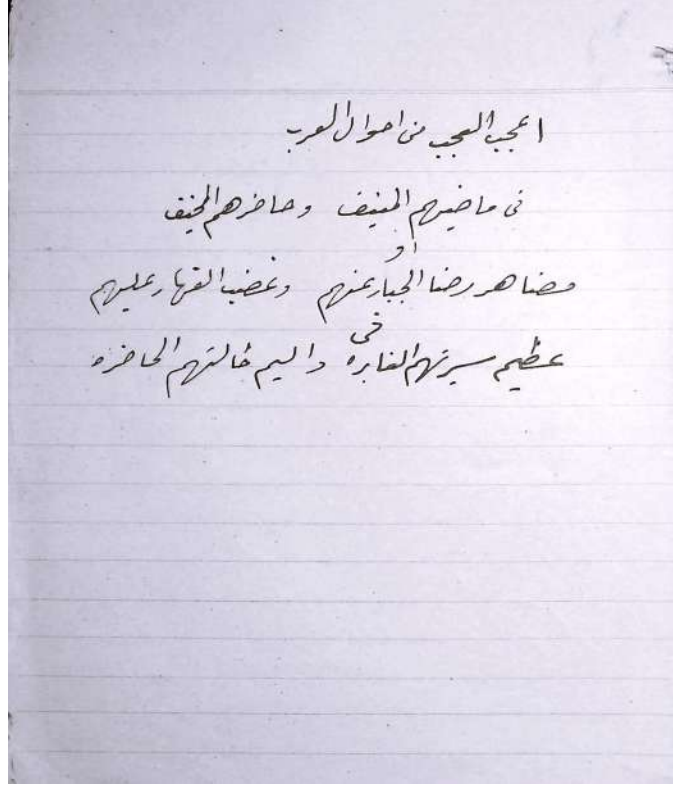 اعجب العجب من احوال العرب
في ماضيهم المنيف وحاضرهم المخيف
او
مضاهر رضا الجبار عنهم وغضب القهار عليهم
في
عظيم سيرتهم الغابره واليم حالتهم الحاضره